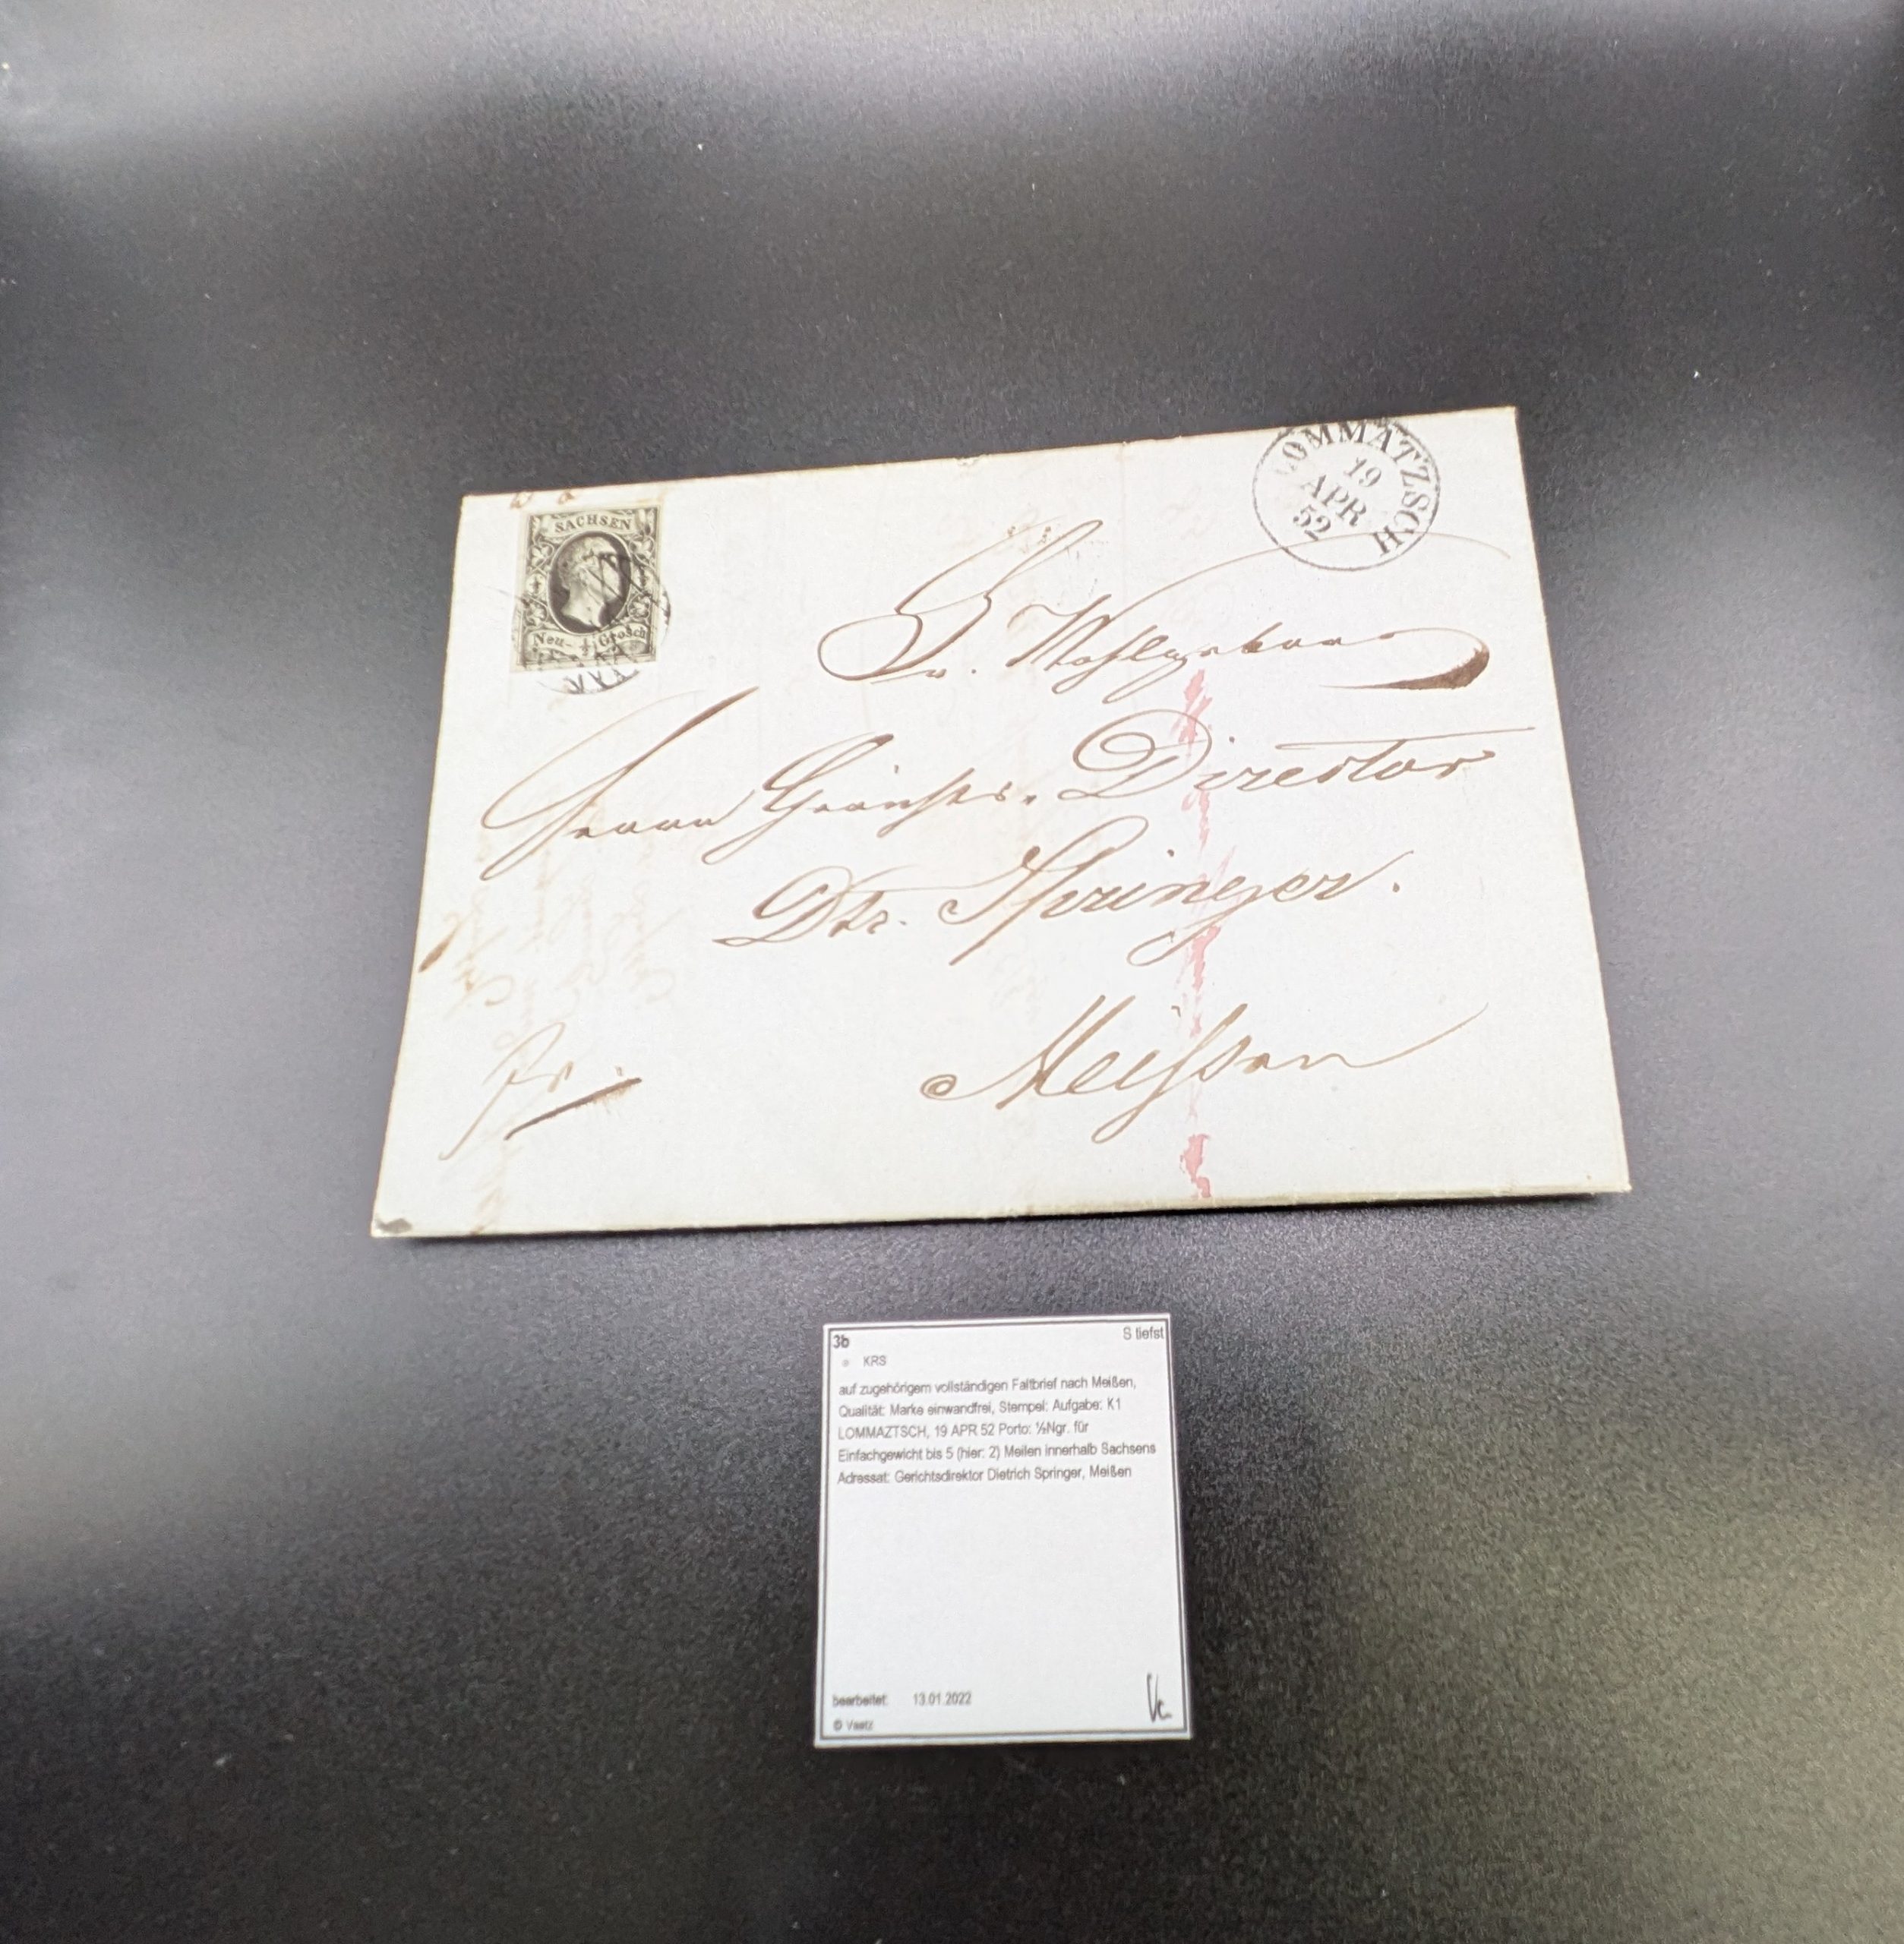 SACHSEN
Neu- ½ Grosch
LOMMATZSCH
19
APR
52
Sr. Wohlgeboren
Herrn Gerichts-Director
Dtr. Springer.
Meissen
fr.
3b
S tiefst
KRS
auf zugehörigem vollständigen Faltbrief nach Meißen,
Qualität: Marke einwandfrei, Stempel: Aufgabe: K1
LOMMAZTSCH, 19 APR 52 Porto: ½Ngr. für
Einfachgewicht bis 5 (hier: 2) Meilen innerhalb Sachsens
Adressat: Gerichtsdirektor Dietrich Springer, Meißen
bearbeitet: 13.01.2022
© Vaatz